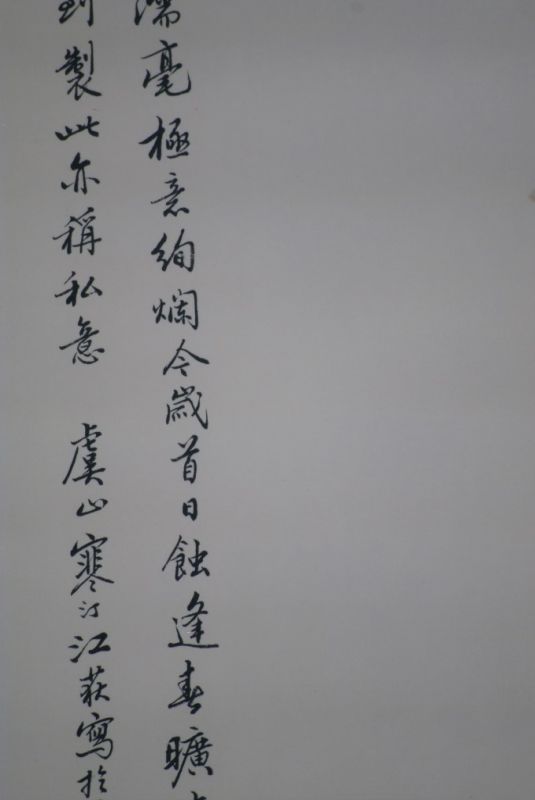 濡毫極意絢爛今歲首日蝕逢春曠
製此亦稱私意 虞山寒汀江萩寫於